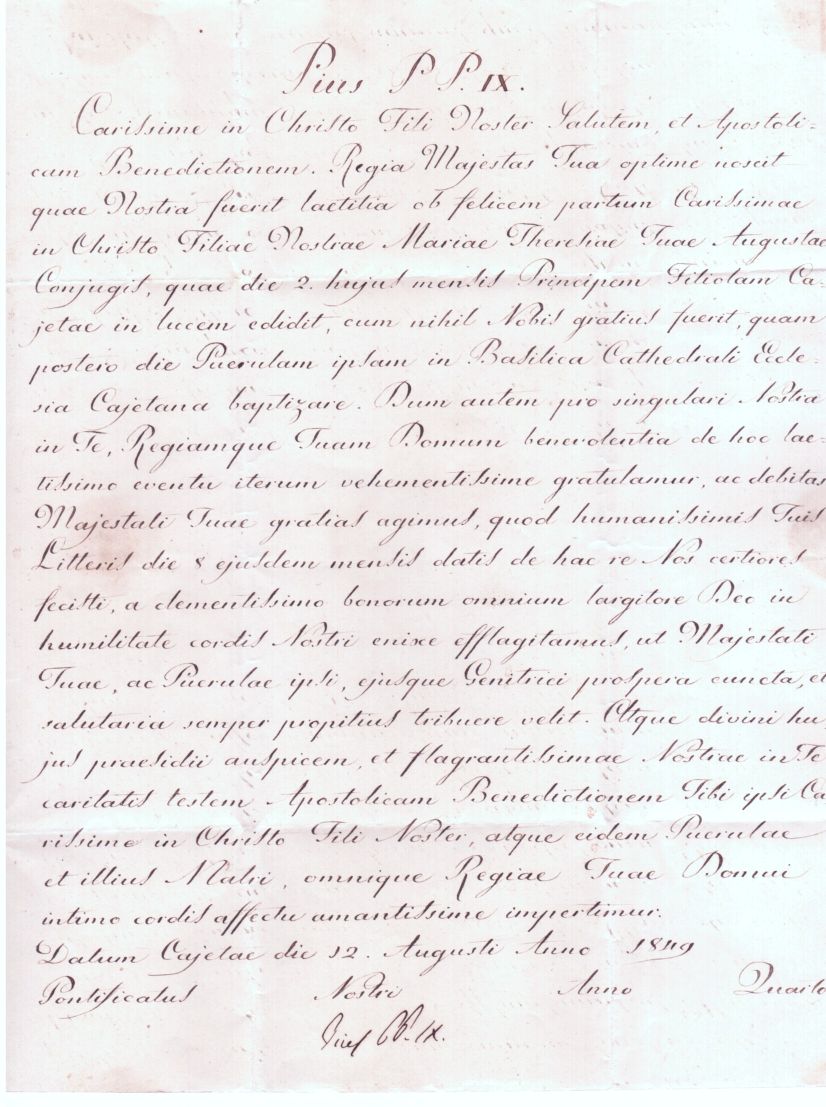 Pius P P. IX.
Carissime in Christo Fili Noster Salutem, et Apostoli=
cam Benedictionem. Regia Majestas Tua optime noscit
quae Nostra fuerit laetitia ob felicem partum Carissimae
in Christo Filiae Nostrae Mariae Theresiae Tuae Augustae
Conjugis, quae die 2. hujus mensis Principem Filiolam Ca-
jetae in lucem edidit, cum nihil Nobis gratius fuerit, quam
postero die Puerulam ipsam in Basilica Cathedrali Eccle-
sia Cajetana baptizare. Dum autem pro singulari Nostra
in Te, Regiamque Tuam Domum benevolentia de hoc lae-
tissimo eventu iterum vehementissime gratulamur, ac debitas
Majestati Tuae gratias agimus, quod humanissimis Tuis
Litteris die 8 ejusdem mensis datis de hac re Nos certiores
fecisti, a clementissimo bonorum omnium largitore Deo in
humilitate cordis Nostri enixe efflagitamus, ut Majestati
Tuae, ac Puerulae ipsi, ejusque Genitrici prospera cuncta, et
salutaria semper propitius tribuere velit. Atque divini hu,
jus praesidii auspicem, et flagrantissimae Nostrae in Te
caritatis testem Apostolicam Benedictionem Tibi ipsi Ca
rissime in Christo Fili Noster, atque eidem Puerulae
et illius Matri, omnique Regiae Tuae Domui
intimo cordis affectu amantissime impertimur.
Datum Cajetae die 12. Augusti Anno 1849
Pontificatus Nostri Anno Quarto
Pius PP. IX.